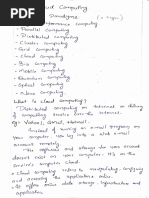 Cloud Computing
Paradigms (+ types)
Performance Computing
- Parallel Computing
- Distributed computing
- Cluster computing
- Grid computing
- Cloud computing
- Bio computing
- Mobile computing
- Quantum computing
- Optical computing
- Nano computing.
What is Cloud computing?
Distributed computing on Internet or delivery
of computing service over the internet.
Eg: Yahoo!, Gmail, Hotmail.
Instead of running an e-mail program on
your computer, you log in to a web e-mail account
remotely.
The software and storage for your account
doesn't exist on your computer. It's on the
service's computer cloud.
- Cloud computing refers to manipulating, configuring
and accessing the applications online.
- It offers online data storage, infrastructure and
application.